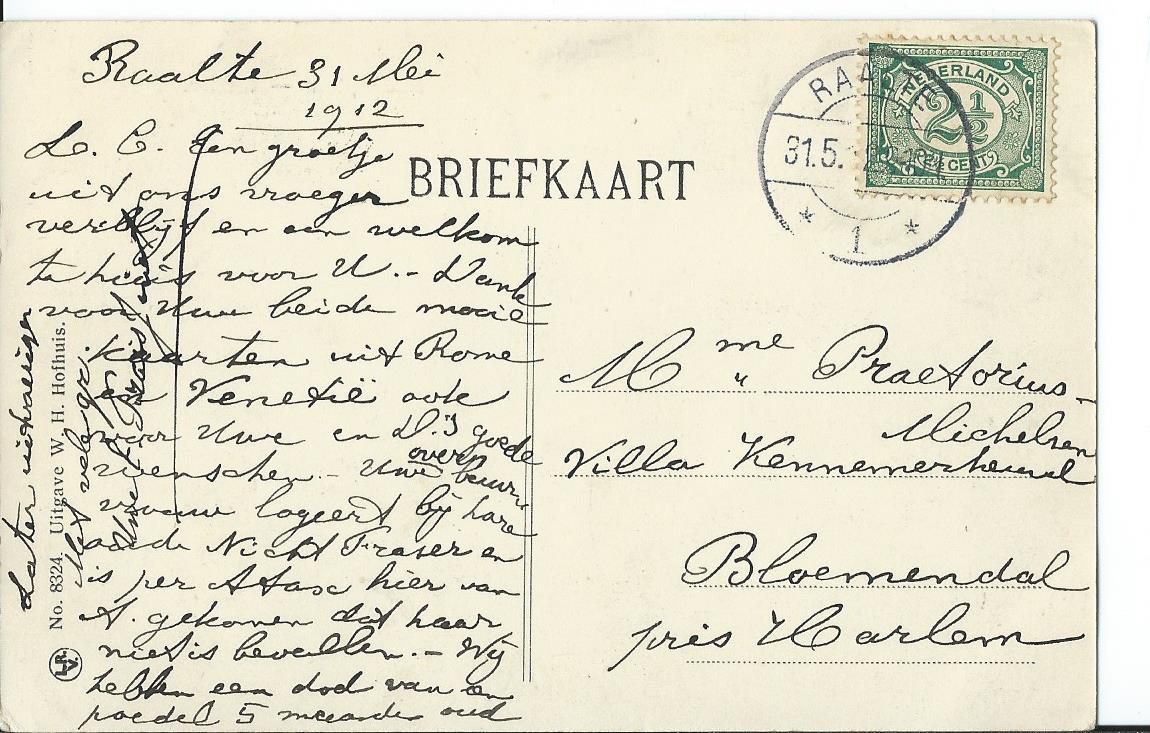 Raalte 31 Mei
1912
L. C. Een groetje
uit ons vroeger
verblijf en een welkom
te huis voor U. - Dank
voor Uwe beide mooie
kaarten uit Rome
en Venetië ook
voor Uwe en D's goede
wenschen. - Uwe over buurvrouw
logeert bij hare
oude Nicht Fraser en
is per Ataxe hier van
A. gekomen dat haar
niet is bevallen. - Wij
hebben een dood van een
poedel 5 maanden oud
Later
Met vele gr.
BRIEFKAART
No. 8324. Uitgave W. H. Hofhuis.
L.R.
V.
RAALTE
31.5.
1
NEDERLAND
2 1/2
2½ CENT
Mme Praetorius-
Michelsen
Villa Kennemerheuvel
Bloemendal
près Harlem